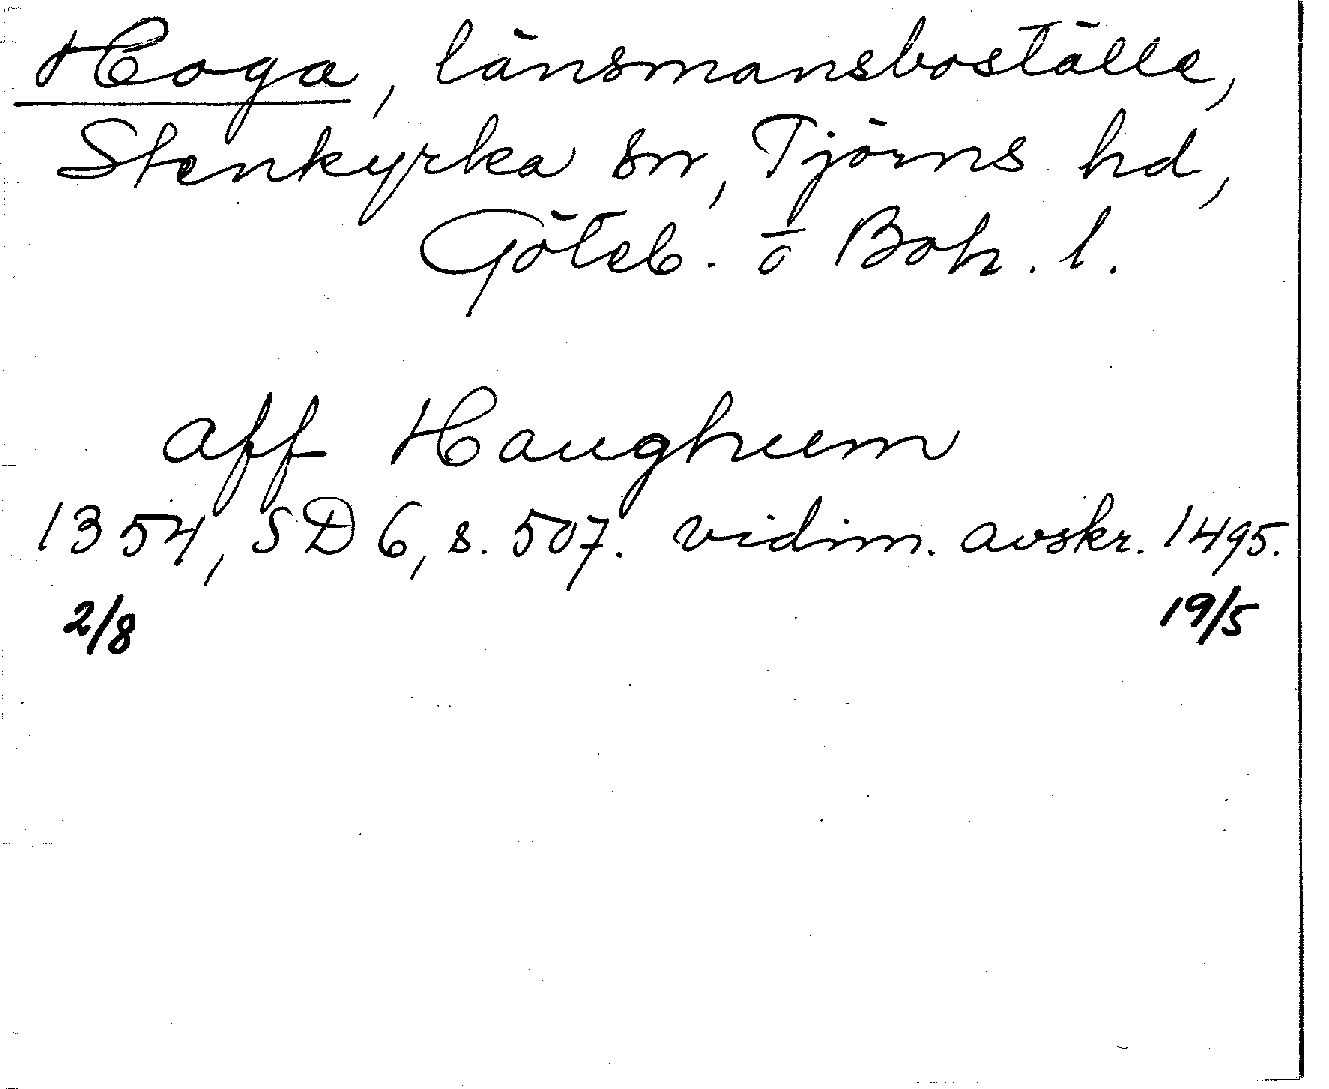 Hoga, länsmansboställe,
Stenkyrka sn, Tjörns hd,
Göteb. o Boh. l.
aff Haughum
1354, SD 6, s. 507. vidim. avskr. 1495.
2/8 19/5